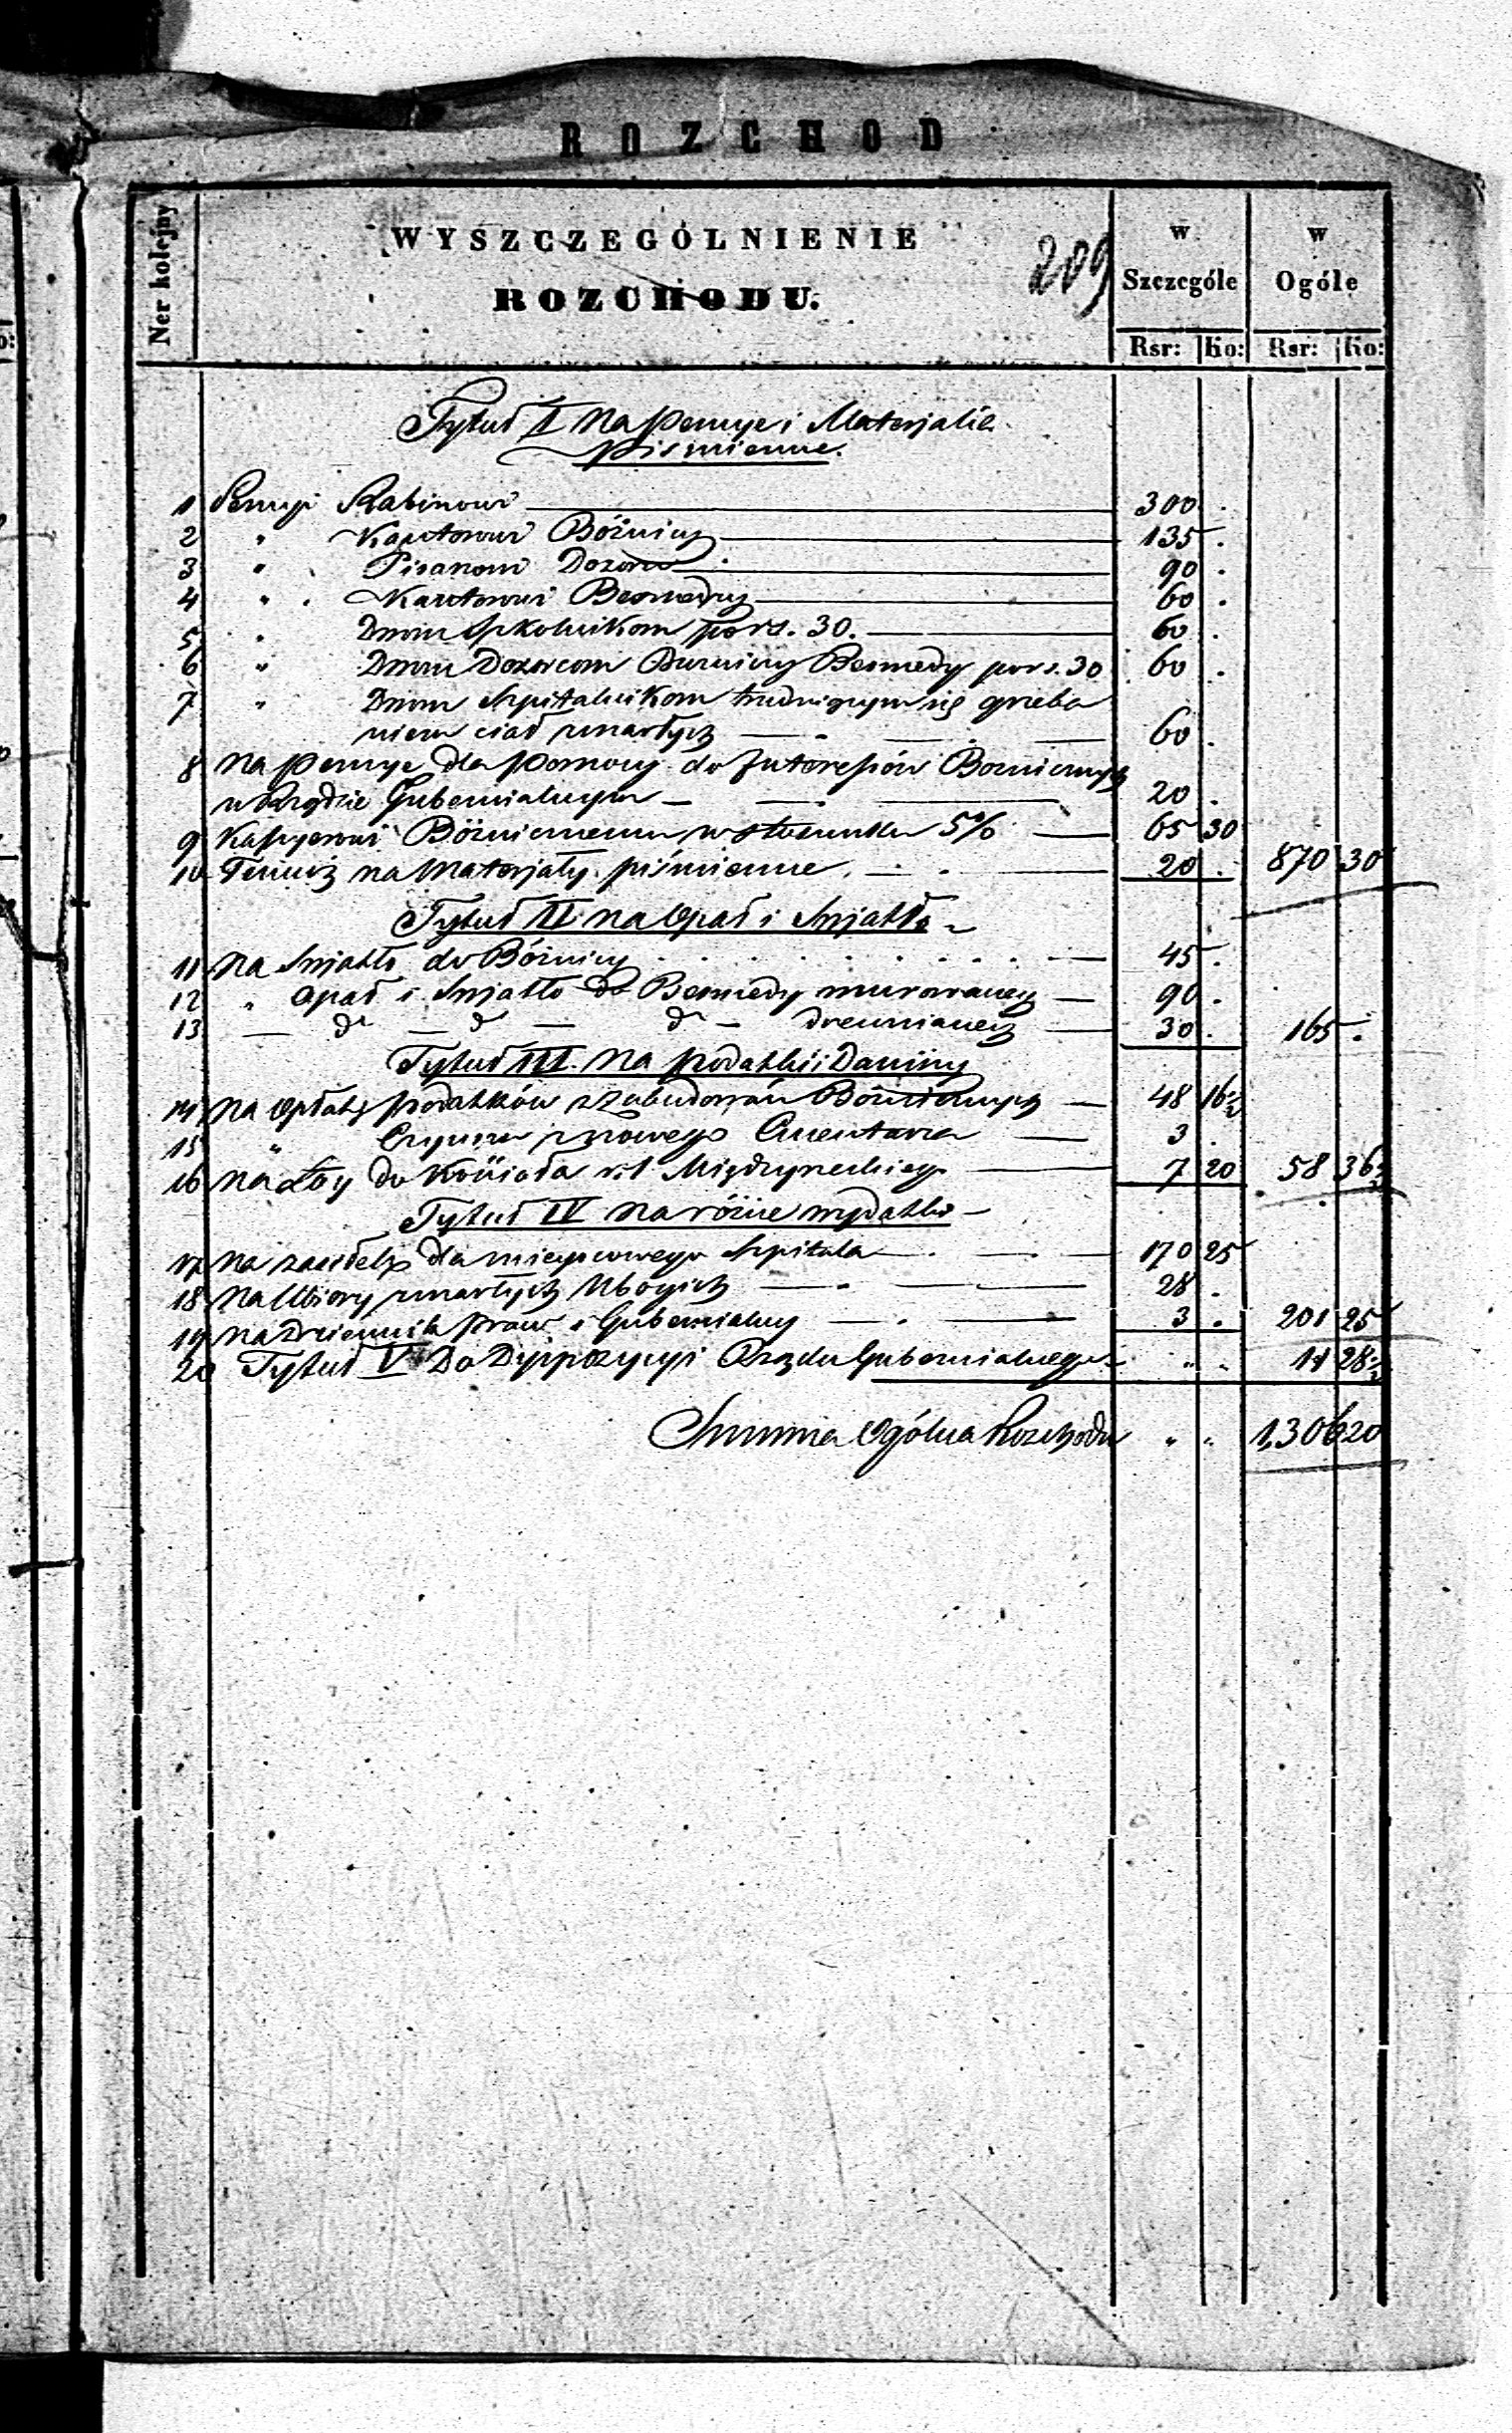 ROZCHOD
Ner kolejny
WYSZCZEGÓLNIENIE
ROZCHODU.
209
w Szczególe
w Ogóle
Rsr: Ko: Rsr: Ko:
Tytuł I Na Pensye i Materjalia
piśmienne.
1 Pensyi Rabinowi 300 .
2 " Kantorowi Bóżnicy 135 .
3 " Pisarzowi Dozoru 90 .
4 " Kantorowi Besmedry 60 .
5 " Dwom Szkolnikom po rs. 30. 60 .
6 " Dwom Dozorcom Burnicy Besmedy po rs. 30 60 .
7 " Dwom Szpitalnikom trudniącym się grzeba
niem ciał zmarłych 60 .
8 Na Pensye dla Pomocy do Interesów Boznicznych
w Rządzie Gubernialnym 20 .
9 Kassyerowi Bóznicznemu w stosunku 5% 65 30
10 Temuż na Materjały piśmienne 20 . 870 30
Tytuł II na Opał i Swjatło
11 Na Swjatło do Bóżnicy 45 .
12 " Opał i Swjatło do Besmedy murowaney 90 .
13 — dº — dº — dº — drewnianey 30 . 165 .
Tytuł III. Na podatki i Daniny
14 Na Opłatę podatków z Zabudowań Bóżnicznych 48 16½
15 " Czynszu z nowego Cmentarza 3 .
16 Na Łóy do Kościoła r: l Międzyrzeckiego 7 20 58 36½
Tytuł IV na różne wydatki
17 Na zasiłek dla mieyscowego Szpitala 170 25
18 Na Ubiory zmarłych Ubogich 28 .
19 Na Dziennik Praw i Gubernialny 3 . 201 25
20 Tytuł V Do Dyspozycyi Rządu Gubernialnego " " 11 28½
Summa Ogólna Rozchodu " " 1,306 20